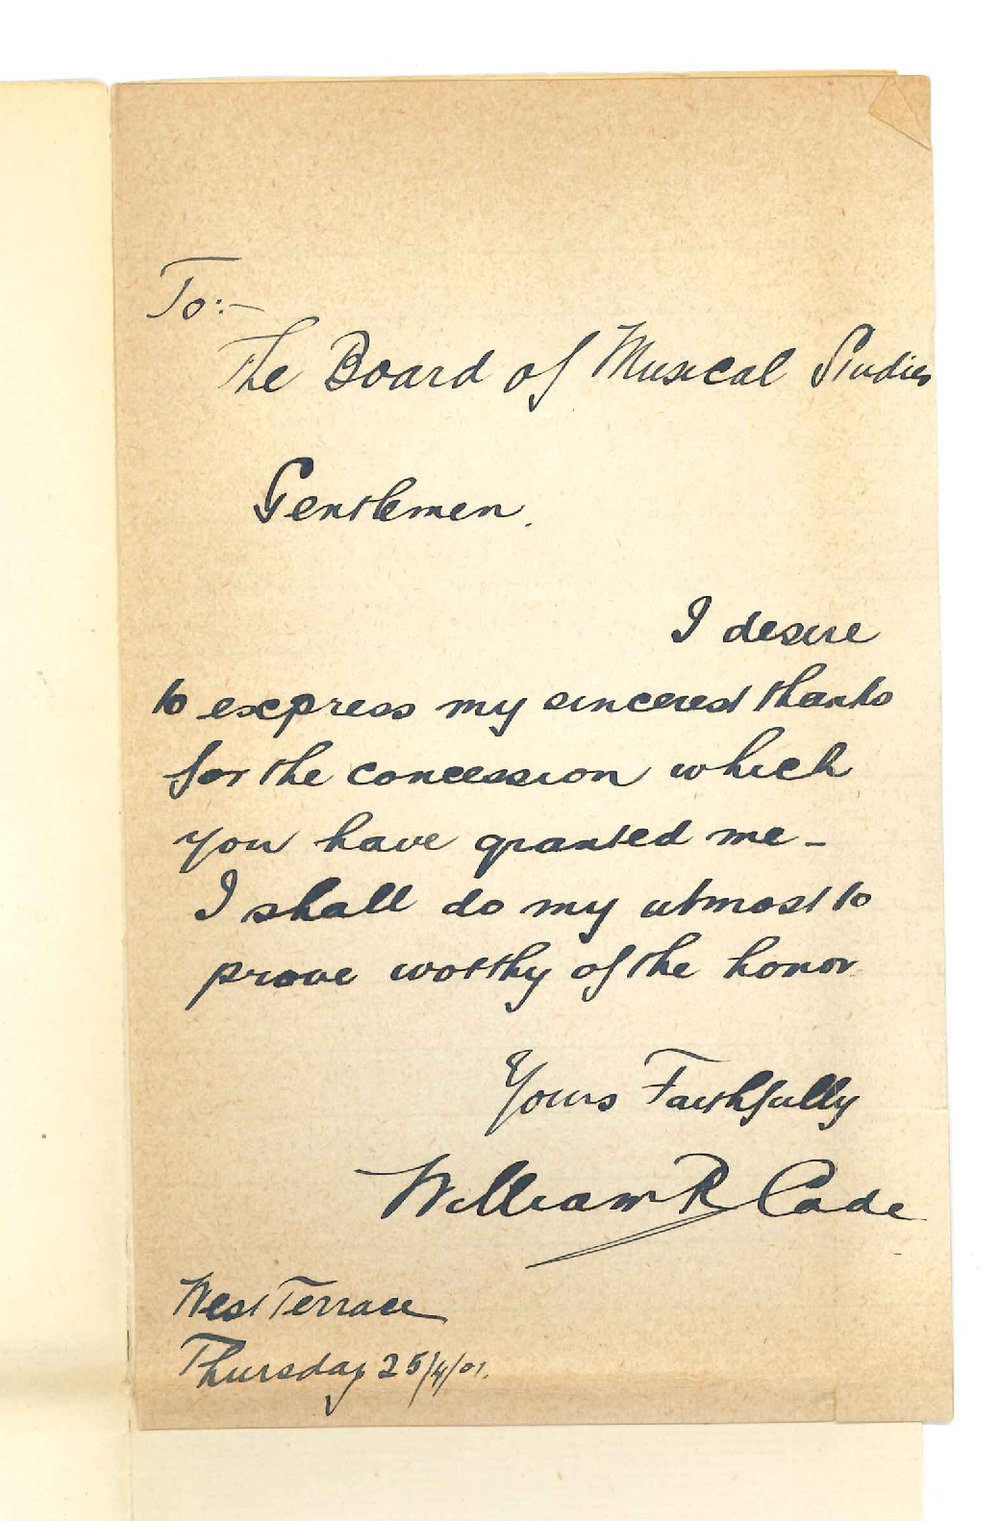 To:-
The Board of Musical Studies
Gentlemen.
I desire
to express my sincerest thanks
for the concession which
you have granted me -
I shall do my utmost to
prove worthy of the honor
Yours Faithfully
William R Cade
West Terrace
Thursday 25/4/01.